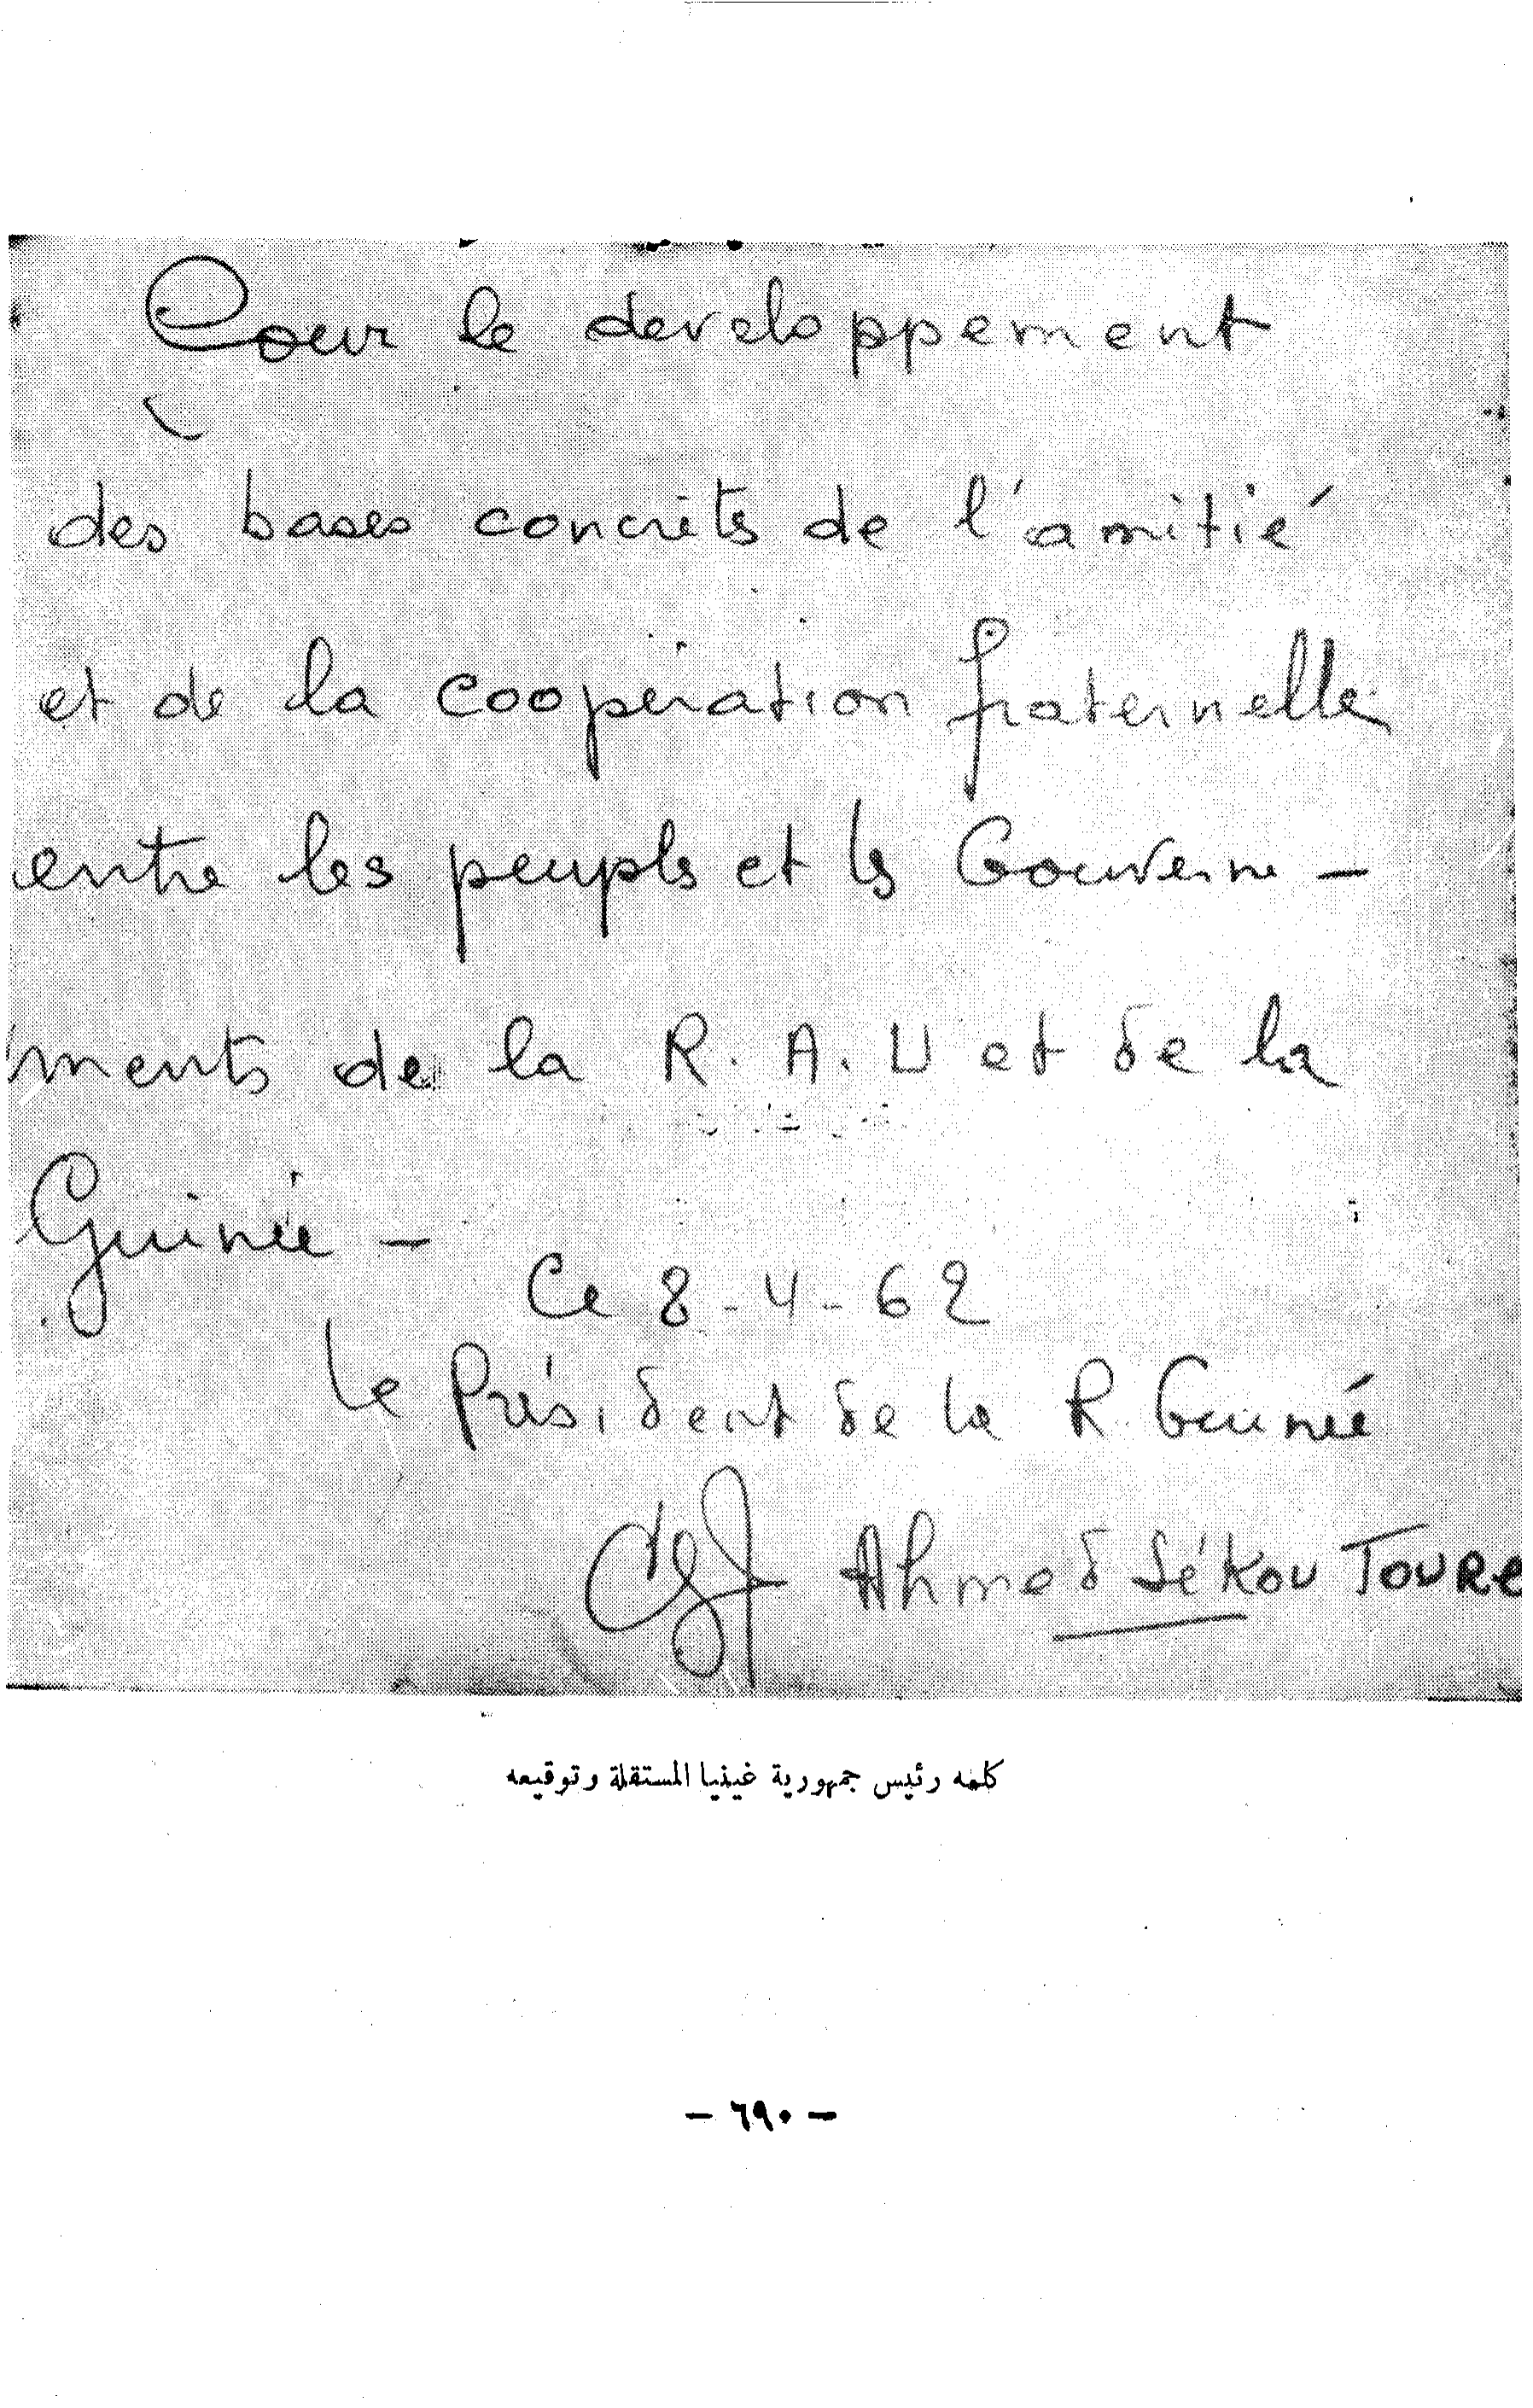 Pour le developpement
des bases concrètes de l'amitié
et de la coopération fraternelle
entre les peuples et les Gouverne -
ments de la R. A. U et de la
Guinée -
Ce 8-4-62
Le Président de la R. Guinée
Ahmed Sékou TOURE
كلمه رئيس جمهورية غينيا المستقلة وتوقيعه
- ٦٩٠ -